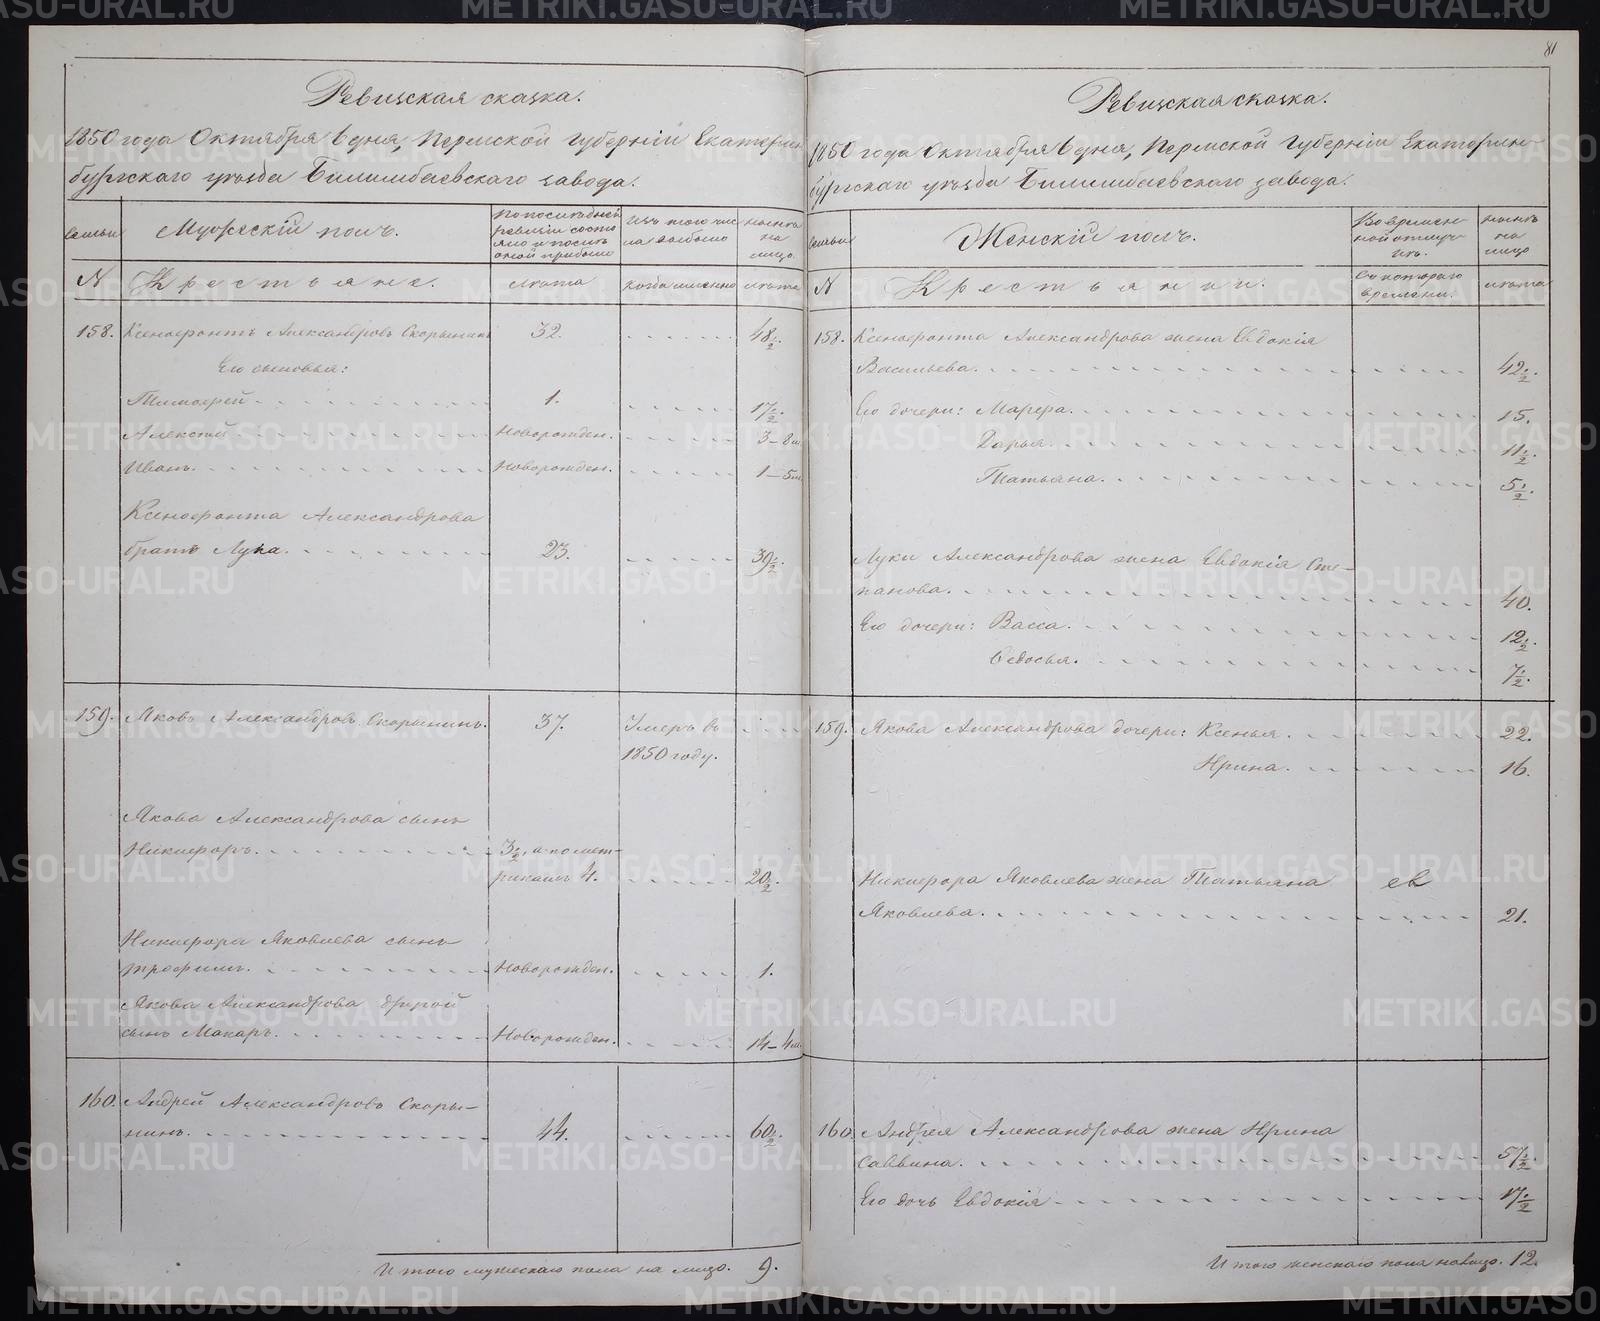 81
Ревизская сказка.
1850 года Октября 6 дня, Пермской Губерніи Екатерин
бургскаго уѣзда Билимбаевскаго завода.
Семьи
Мужескій полъ.
По послѣдней
ревизіи состо
яло и послѣ
оной прибыло
Изъ того чис
ла выбыло
нынѣ
на
лицо.
N
Крестьяне.
лѣта
когда именно
лѣта
158. Ксенофонтъ Александровъ Скорынинъ 32. 48½.
Его сыновья:
Тимофей 1. 17½.
Алексѣй Новорожден. 3-8м
Иванъ. Новорожден. 1-5м
Ксенофонта Александрова
братъ Лука. 23. 39½.
159. Яковъ Александровъ Скорынинъ. 37. Умеръ въ
1850 году.
Якова Александрова сынъ
Никифоръ. 3½, а по мет-
рикамъ 4. 20½.
Никифора Яковлева сынъ
Трофимъ. Новорожден. 1.
Якова Александрова другой
сынъ Макаръ. Новорожден. 14-4м
160. Андрей Александровъ Скоры-
нинъ. 44. 60½.
Итого мужескаго пола на лицо. 9.
Ревизская сказка.
1850 года Октября 6 дня, Пермской Губерніи Екатерин-
бургскаго уѣзда Билимбаевскаго завода.
Семьи
Женскій полъ.
Во времен-
ной отлуч-
кѣ.
нынѣ
на
лицо
N
Крестьянки.
Съ котораго
времени.
лѣта
158. Ксенофонта Александрова жена Евдокія
Васильева. 42½.
Его дочери: Марфа. 15.
Дарья. 11½.
Татьяна. 5½.
Луки Александрова жена Евдокія Сте-
панова. 40.
Его дочери: Васса. 12½.
Федосья. 7½.
159. Якова Александрова дочери: Ксенья. 22.
Ирина. 16.
Никифора Яковлева жена Татьяна
Яковлева. 21.
160. Андрея Александрова жена Ирина
Саввина. 57½.
Его дочь Евдокія 17½
Итого женскаго пола на лицо. 12.
METRIKI.GASO-URAL.RU